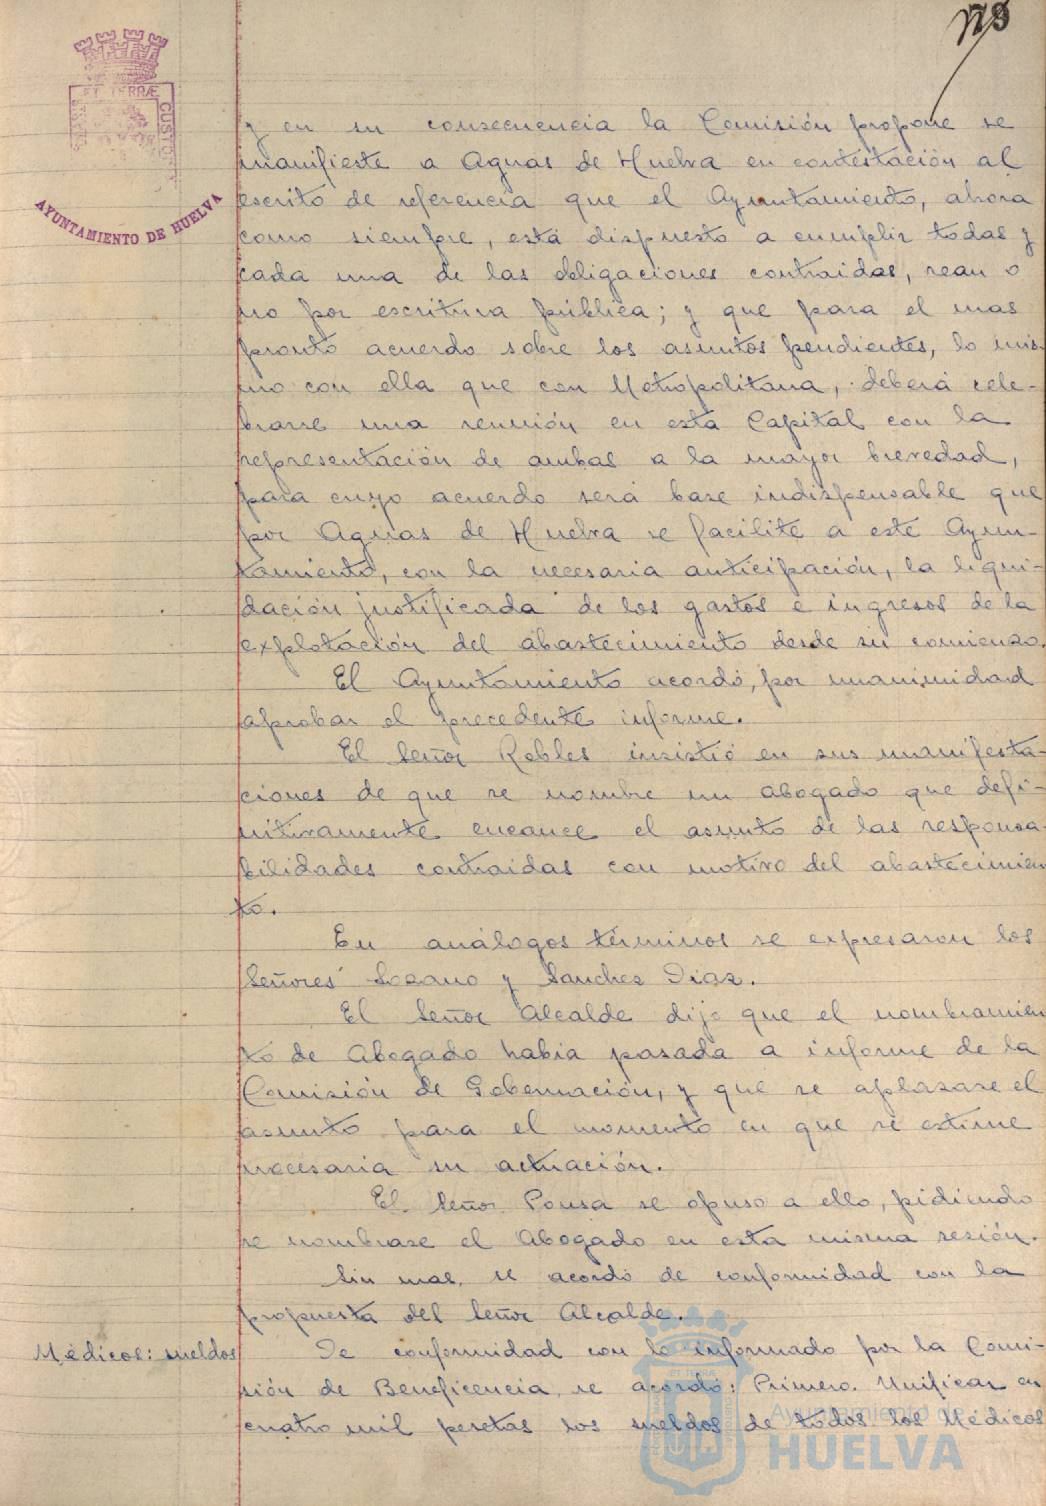 173
ET TERRÆ CUSTO
AYUNTAMIENTO DE HUELVA
y en su consecuencia la Comisión propone se
manifieste a Aguas de Huelva en contestación al
escrito de referencia que el Ayuntamiento, ahora
como siempre, está dispuesto a cumplir todas y
cada una de las obligaciones contraidas, sean o
no por escritura pública; y que para el mas
pronto acuerdo sobre los asuntos pendientes, lo mis-
mo con ella que con Metropolitana, deberá cele-
brarse una reunión en esta Capital con la
representación de ambas a la mayor brevedad,
para cuyo acuerdo será base indispensable que
por Aguas de Huelva se facilite a este Ayun-
tamiento, con la necesaria anticipación, la liqui-
dación justificada de los gastos e ingresos de la
explotación del abastecimiento desde su comienzo.
El Ayuntamiento acordó, por unanimidad
aprobar el precedente informe.
El Señor Robles insistió en sus manifesta-
ciones de que se nombre un abogado que defi-
nitivamente encauce el asunto de las responsa-
bilidades contraidas con motivo del abastecimien
to.
En análogos términos se expresaron los
Señores Lozano y Sanchez Diaz.
El Señor Alcalde dijo que el nombramien
to de Abogado habia pasado a informe de la
Comisión de Gobernación, y que se aplazase el
asunto para el momento en que se estime
necesaria su actuación.
El Señor Ponsa se opuso a ello, pidiendo
se nombrase el Abogado en esta misma sesión.
Sin mas, se acordó de conformidad con la
propuesta del Señor Alcalde.
Médicos: sueldos
De conformidad con lo informado por la Comi-
sión de Beneficencia, se acordó: Primero. Unificar en
cuatro mil pesetas los sueldos de todos los Médicos
Ayuntamiento de
HUELVA